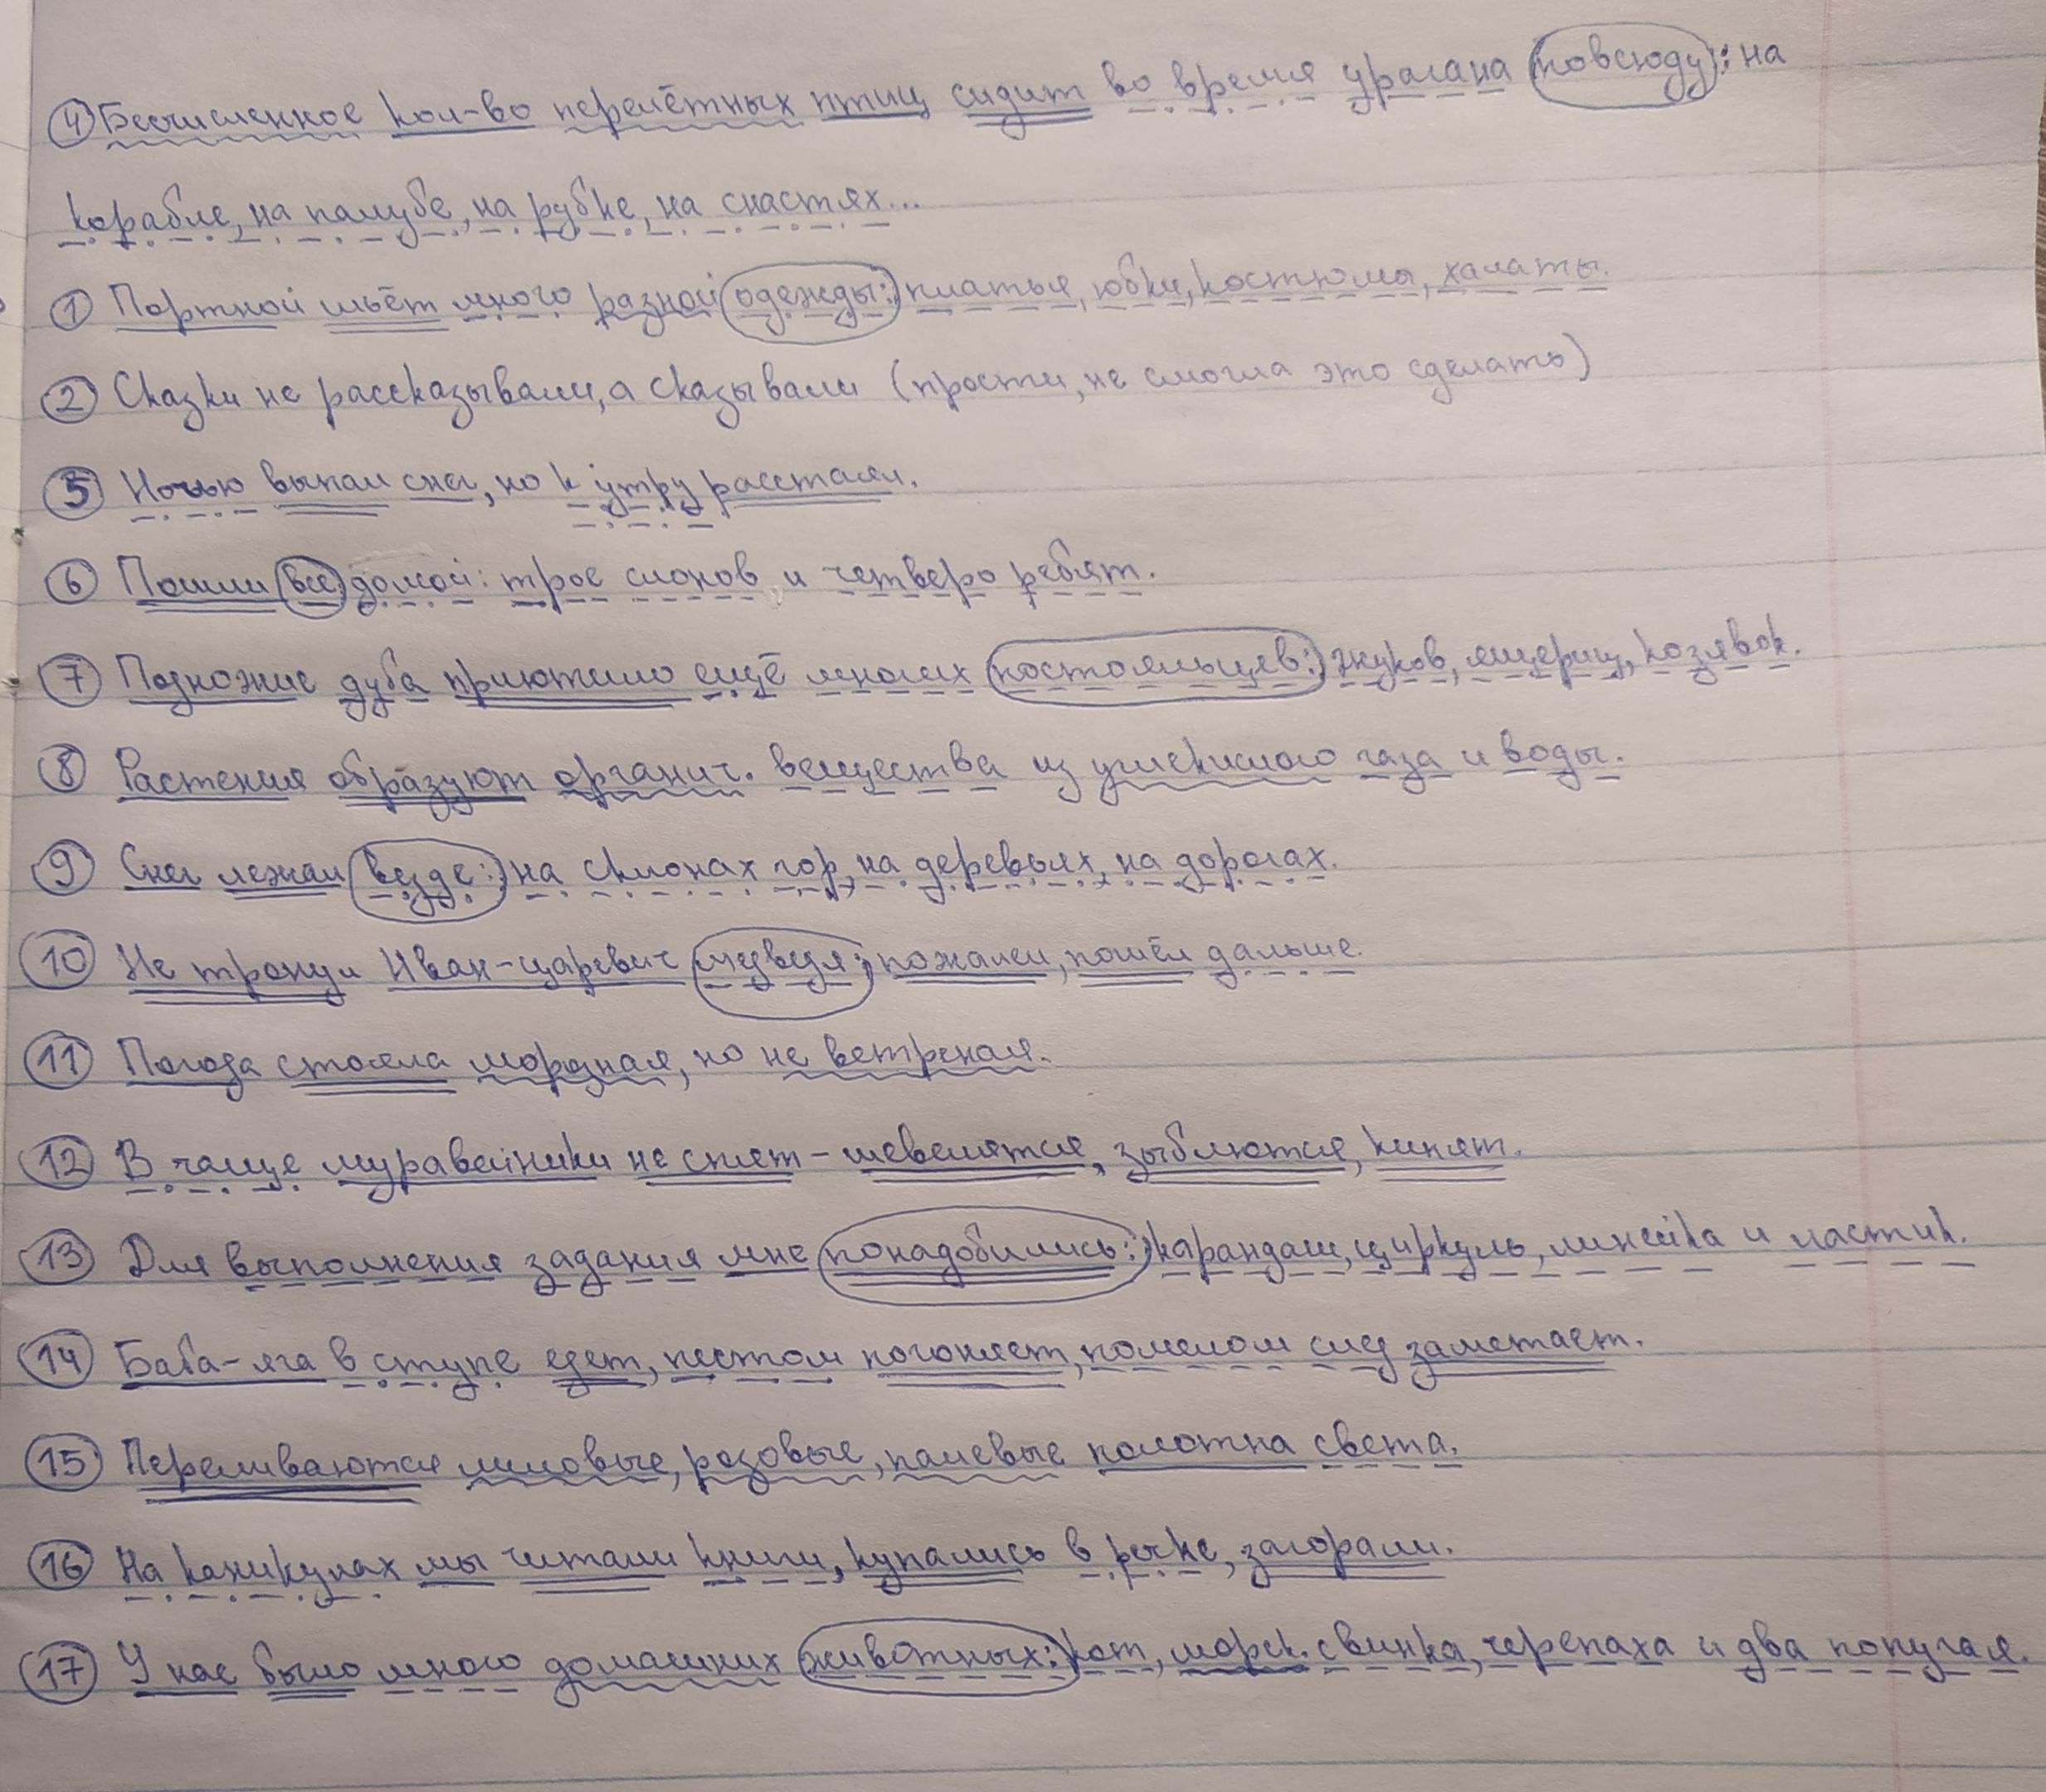 ④ Бесчисленное кол-во перелётных птиц сидит во время урагана повсюду: на
корабле, на палубе, на рубке, на снастях...
① Портной шьёт много разной одежды: платья, юбки, костюмы, халаты.
② Сказки не рассказывали, а сказывали (прости, не смогла это сделать)
⑤ Ночью выпал снег, но к утру расстаял.
⑥ Пошли все домой: трое слонов и четверо ребят.
⑦ Подножие дуба приютило ещё многих постояльцев: жуков, ящериц, козявок.
⑧ Растения образуют органич. вещества из углекислого газа и воды.
⑨ Снег лежал везде: на склонах гор, на деревьях, на дорогах.
⑩ Не тронул Иван-царевич медведя: пожалел, пошёл дальше.
⑪ Погода стояла морозная, но не ветреная.
⑫ В чаще муравейники не спят - шевелятся, зыблются, кипят.
⑬ Для выполнения задания мне понадобились: карандаш, циркуль, линейка и ластик.
⑭ Баба-яга в ступе едет, пестом погоняет, помелом след заметает.
⑮ Переливаются лиловые, розовые, палевые полотна света.
⑯ На каникулах мы читали книги, купались в речке, загорали.
⑰ У нас было много домашних животных: кот, морск. свинка, черепаха и два попугая.